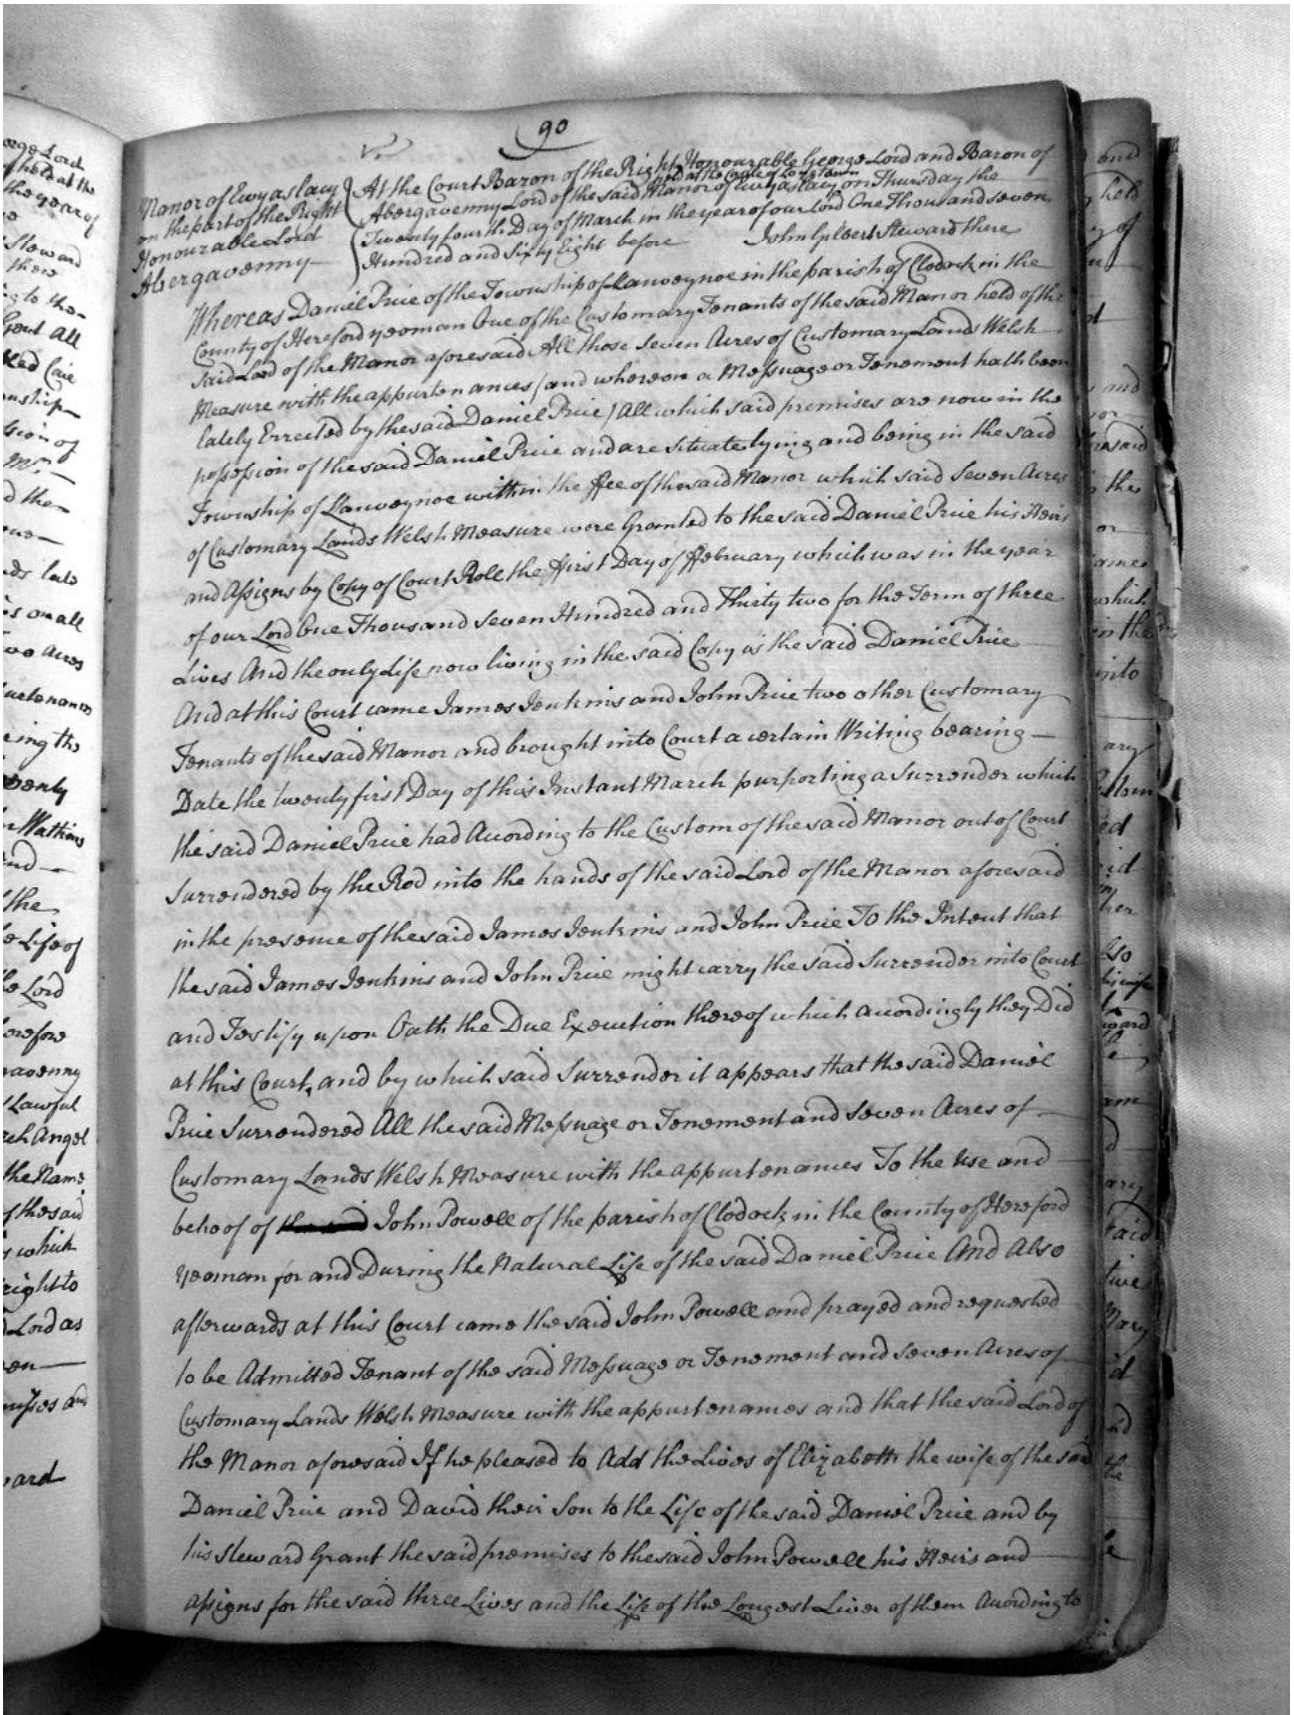 90
Manor of Ewyaslacy
on the part of the Right
Honourable Lord
Abergavenny
At the Court Baron of the Right Honourable George Lord and Baron of
held at the Castle of Longtown
Abergavenny Lord of the said Manor of Ewyaslacy on Thursday the
Twenty fourth Day of March in the year of our Lord One Thousand seven
Hundred and Sixty Eight before John Gilbert Steward there
Whereas Daniel Price of the Township of Lanveynoe in the parish of Clodock in the
County of Hereford yeoman One of the Customary Tenants of the said Manor held of the
said Lord of the Manor aforesaid All those Seven Acres of Customary Lands Welsh
Measure with the appurtenances (and whereon a Messuage or Tenement hath been
lately Errected by the said Daniel Price) All which said premises are now in the
possession of the said Daniel Price and are situate lying and being in the said
Township of Lanveynoe within the ffee of the said Manor which said Seven Acres
of Customary Lands Welsh Measure were Granted to the said Daniel Price his Heirs
and Assigns by Copy of Court Roll the ffirst Day of ffebruary which was in the year
of our Lord One Thousand Seven Hundred and Thirty two for the Term of three
Lives And the only Life now living in the said Copy is the said Daniel Price
And at this Court came James Jenkins and John Price two other Customary
Tenants of the said Manor and brought into Court a certain Writing bearing
Date the twenty first Day of this Instant March purporting a Surrender which
the said Daniel Price had According to the Custom of the said Manor out of Court
Surrendered by the Rod into the hands of the said Lord of the Manor aforesaid
in the presence of the said James Jenkins and John Price To the Intent that
the said James Jenkins and John Price might carry the said Surrender into Court
and Testify upon Oath the Due Execution thereof which accordingly they Did
at this Court, and by which said Surrender it appears that the said Daniel
Price Surrendered All the said Messuage or Tenement and Seven Acres of
Customary Lands Welsh Measure with the appurtenances To the Use and
behoof of the said John Powell of the parish of Clodock in the County of Hereford
yeoman for and During the Natural Life of the said Daniel Price And Also
afterwards at this Court came the said John Powell and prayed and requested
to be Admitted Tenant of the said Messuage or Tenement and Seven Acres of
Customary Lands Welsh Measure with the appurtenances and that the said Lord of
the Manor aforesaid If he pleased to Add the Lives of Elizabeth the wife of the said
Daniel Price and David their Son to the Life of the said Daniel Price and by
his Steward Grant the said premises to the said John Powell his Heirs and
assigns for the said three Lives and the Life of the Longest Liver of them According to